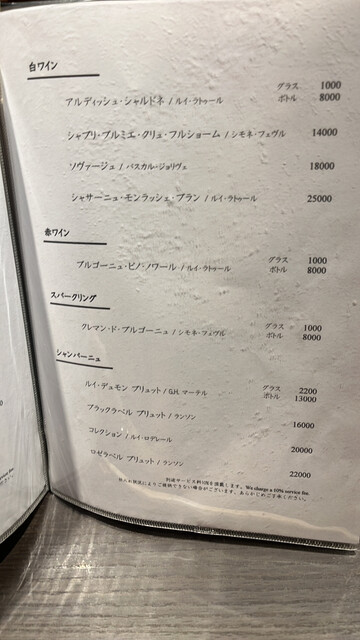 白ワイン
グラス 1000
アルディッシュ・シャルドネ / ルイ・ラトゥール ボトル 8000
シャブリ・プルミエ・クリュ・フルショーム / シモネ・フェヴル 14000
ソヴァージュ / パスカル・ジョリヴェ 18000
シャサーニュ・モンラッシェ・ブラン / ルイ・ラトゥール 25000
赤ワイン
グラス 1000
ブルゴーニュ・ピノ・ノワール / ルイ・ラトゥール ボトル 8000
スパークリング
グラス 1000
クレマン・ド・ブルゴーニュ / シモネ・フェヴル ボトル 8000
シャンパーニュ
グラス 2200
ルイ・デュモン ブリュット / G.H. マーテル ボトル 13000
ブラックラベル ブリュット / ランソン 16000
コレクション / ルイ・ロデレール 20000
ロゼラベル ブリュット / ランソン 22000
別途サービス料10%を頂戴します。We charge a 10% service fee.
によりご提供できない場合がございます。あらかじめご了承ください。